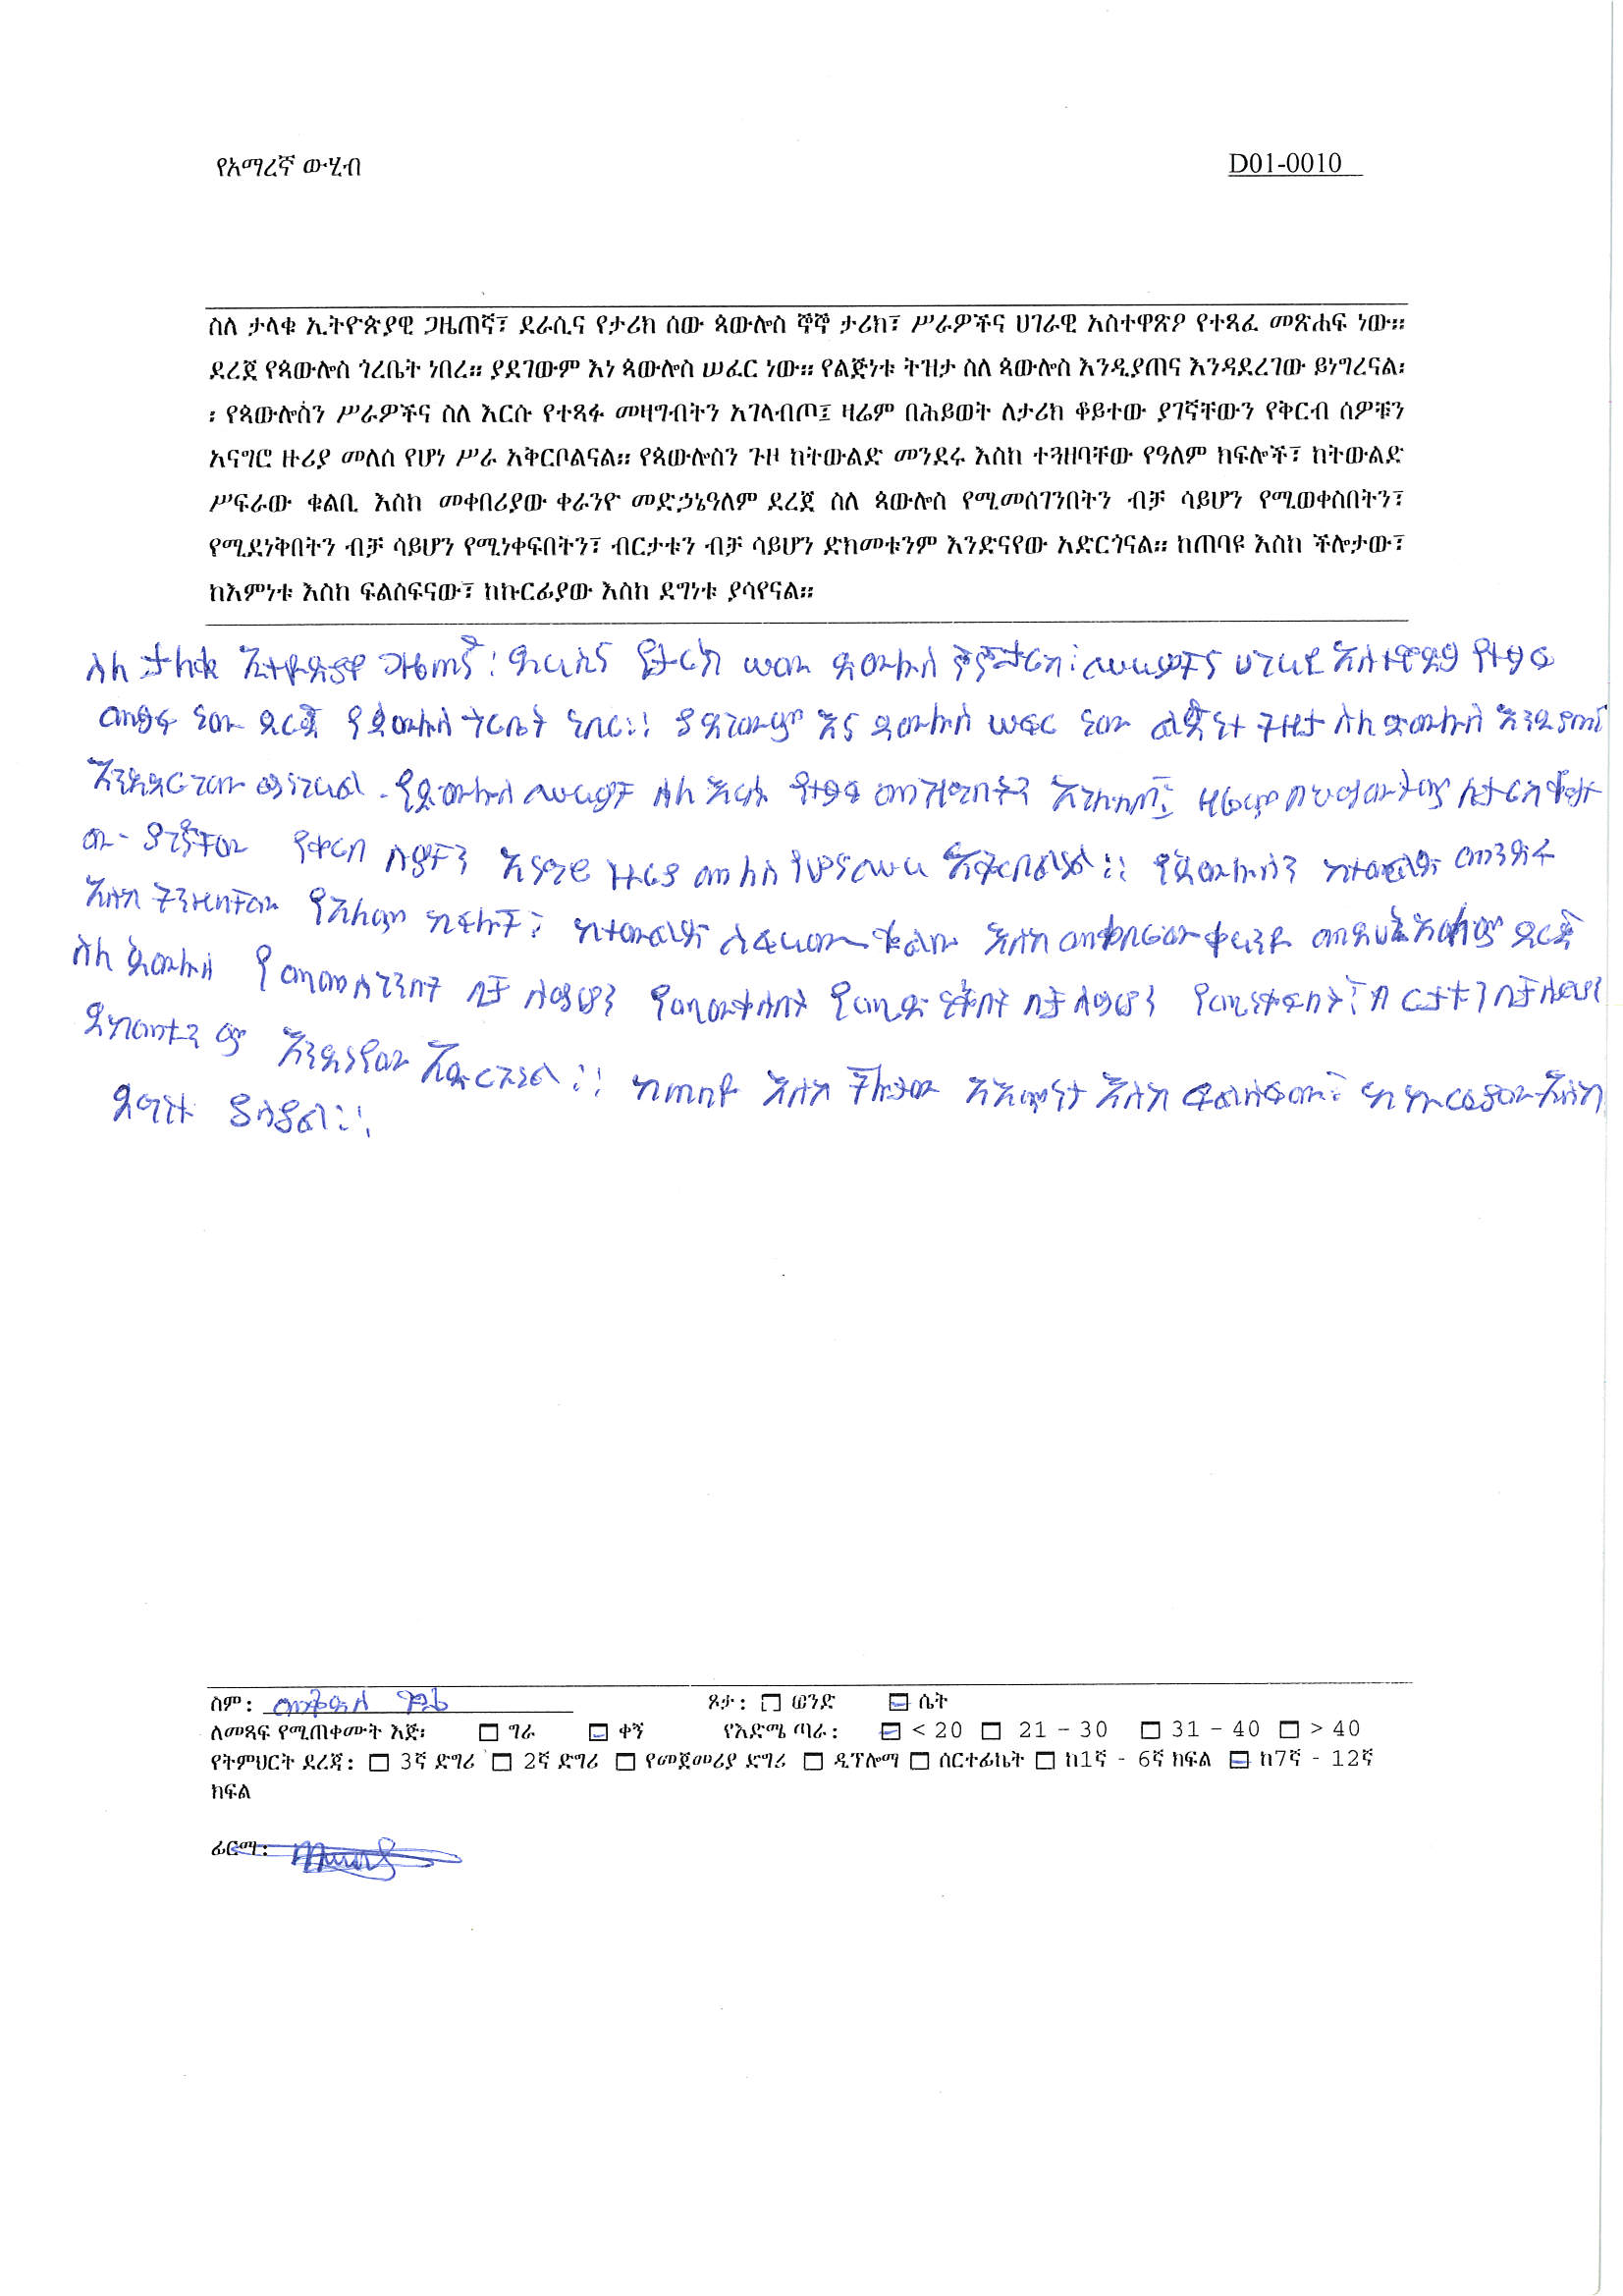 የአማረኛ ውሂብ D01-0010
ስለ ታላቁ ኢትዮጵያዊ ጋዜጠኛ፣ ደራሲና የታሪክ ሰው ጳውሎስ ኞኞ ታሪክ፣ ሥራዎችና ሀገራዊ አስተዋጽዖ የተጻፈ መጽሐፍ ነው።
ደረጀ የጳውሎስ ጎረቤት ነበረ። ያደገውም እነ ጳውሎስ ሠፈር ነው። የልጅነቱ ትዝታ ስለ ጳውሎስ እንዲያጠና እንዳደረገው ይነግረናል፡
፡ የጳውሎስን ሥራዎችና ስለ እርሱ የተጻፉ መዛግብትን አገላብጦ፤ ዛሬም በሕይወት ለታሪክ ቆይተው ያገኛቸውን የቅርብ ሰዎቹን
አናግሮ ዙሪያ መለስ የሆነ ሥራ አቅርቦልናል። የጳውሎስን ጉዞ ከትውልድ መንደሩ እስከ ተጓዘባቸው የዓለም ክፍሎች፣ ከትውልድ
ሥፍራው ቁልቢ እስከ መቀበሪያው ቀራንዮ መድኃኔዓለም ደረጀ ስለ ጳውሎስ የሚመሰገንበትን ብቻ ሳይሆን የሚወቀስበትን፣
የሚደነቅበትን ብቻ ሳይሆን የሚነቀፍበትን፣ ብርታቱን ብቻ ሳይሆን ድክመቱንም እንድናየው አድርጎናል። ከጠባዩ እስከ ችሎታው፣
ከእምነቱ እስከ ፍልስፍናው፣ ከኩርፊያው እስከ ደግነቱ ያሳየናል።
ስለ ታላቁ ኢትዮጵያዊ ጋዜጠኛ፣ ደራሲና የታሪክ ሠው ጳውሎስ ኞኞ ታሪክ፣ ሀገራዊ አስተዋጽዖ የተፃፈ
መፅፍ ነው ደረጄ የጳውሎስ ጎረቤት ነበረ። ያደገውም እና ጳውሎስ ሠፈር ነው ልጅነት ትዝታ ስለ ጳውሎስ
እንዳደርገው ይነገረናል የጳውሎስ ስለ እርሱ የተፃፉ
ያገኛቸው የቀርብ ሰዎችን ዙሪያ መለስ አቅርቦልናል። የጳውሎስን ከተውልድ መንደሩ
እስከ የአለም ክፍሎች፣ ከተውልድ እስከ ደረጄ
ስለ ጳውሎስ የሚመሰገንበት ብቻ ሳይሆን የሚወቀስበት ብቻ ሳይሆን የሚነቀፍበት፣
እንድናየው አድርጎናል።። ከጠባዩ እስከ ችሎታው ከእምነት እስከ ፍልስፍናው፣ እስከ
ደግነቱ ያሳያል።
ስም: ጾታ: ወንድ ሴት
ለመጻፍ የሚጠቀሙት እጅ፡ ግራ ቀኝ የእድሜ ጣራ: < 20 21 - 30 31 - 40 > 40
የትምህርት ደረጃ: 3ኛ ድግሪ 2ኛ ድግሪ የመጀመሪያ ድግሪ ዲፕሎማ ሰርተፊኬት ከ1ኛ - 6ኛ ክፍል ከ7ኛ - 12ኛ
ክፍል
ፊርማ: